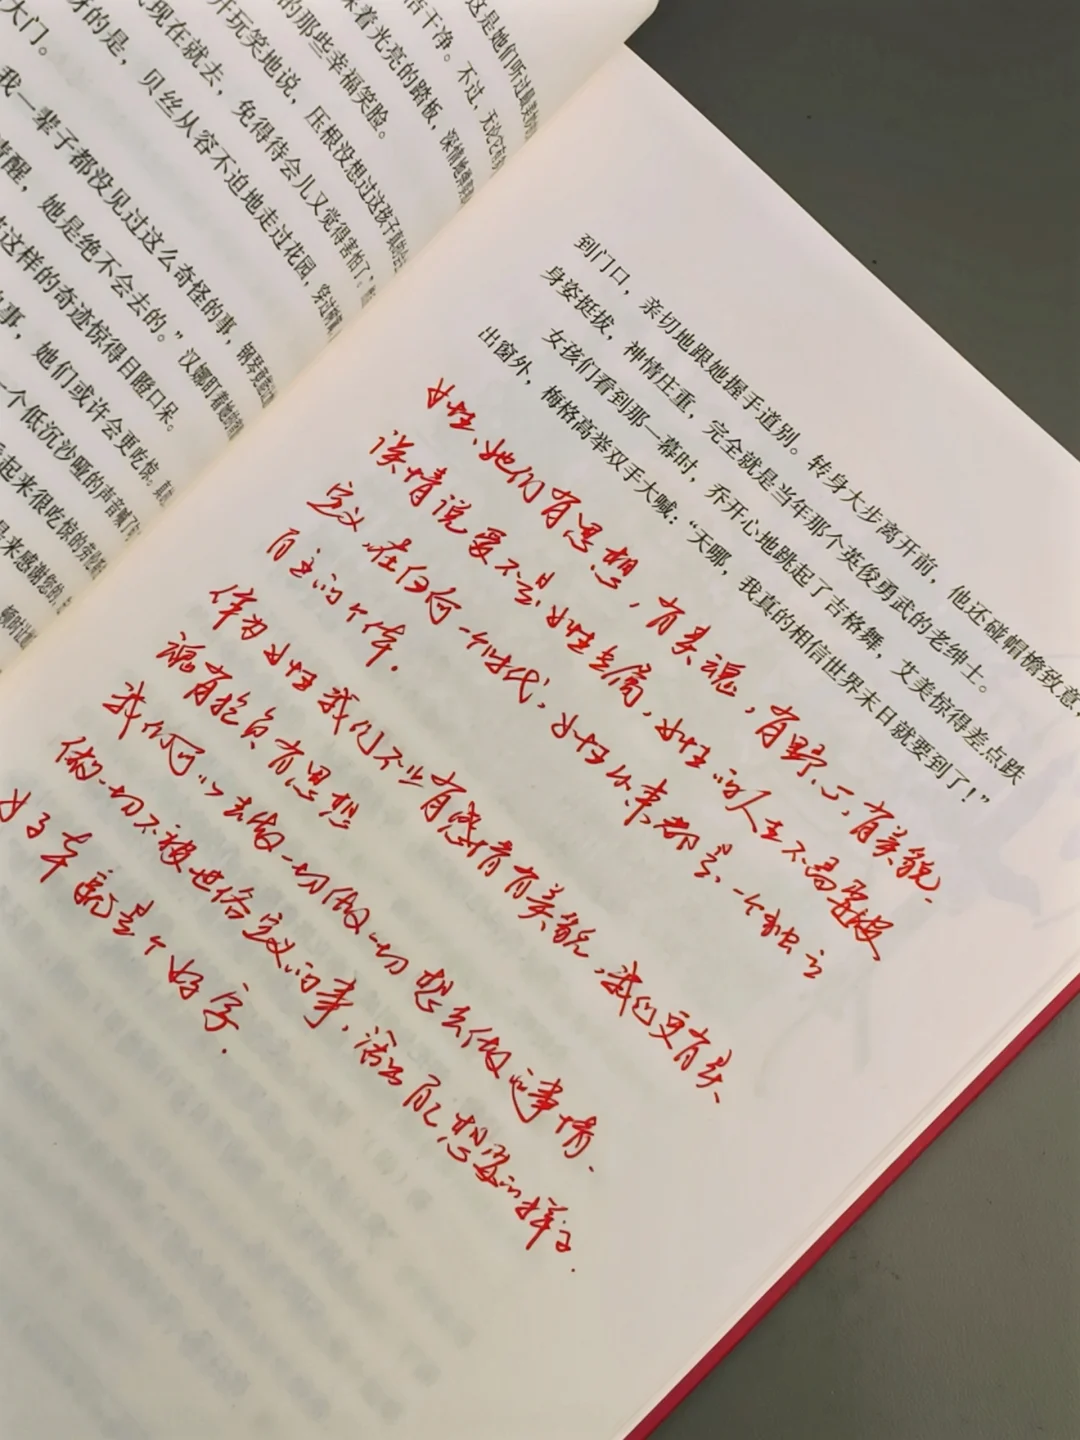 这是她们听过最美妙的
洁干净。不过，无论它有多
抹着光亮的踏板，深情地弹起那
的那些幸福笑脸。
开玩笑地说，压根没想过这孩子真的会
现在就去，免得待会儿又觉得害怕了。
讶的是，贝丝从容不迫地走过花园，穿过树篱
大门。
我一辈子都没见过这么奇怪的事，钢琴竟能让她
清醒，她是绝不会去的。”汉娜盯着她的背
这样的奇迹惊得目瞪口呆。
事，她们或许会更吃惊。真的
一个低沉沙哑的声音喊了句
起来很吃惊的劳伦斯
是来感谢您的，
顿时让她
到门口，亲切地跟她握手道别。转身大步离开前，他还碰帽檐致意，
身姿挺拔，神情庄重，完全就是当年那个英俊勇武的老绅士。
女孩们看到那一幕时，乔开心地跳起了吉格舞，艾美惊得差点跌
出窗外，梅格高举双手大喊：“天哪，我真的相信世界末日就要到了！”
女性、她们有思想，有灵魂，有野心，有美貌。
谈情说爱不是女性专属，女性的人生不需要被
定义，在任何一个时代，女性从来都是一个独立
自主的个体。
作为女性我们不止有感情有美貌，我们更有灵
魂有抱负有思想
我们可以去做一切做一切想去做的事情、
做一切不被世俗定义的事，活出自己想要的样子.
女子本就是个好字.